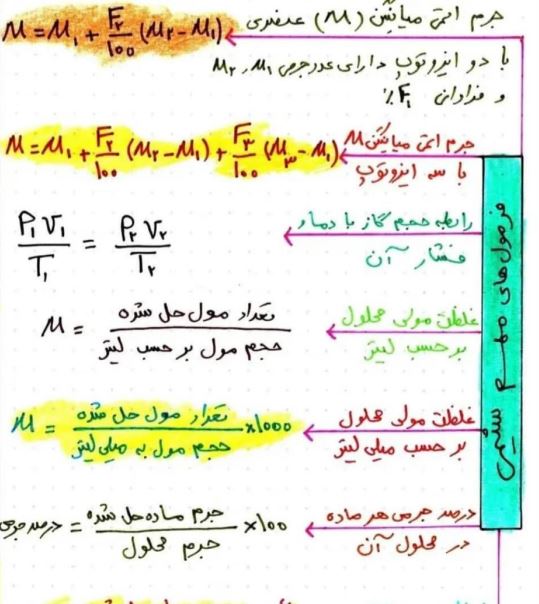 فرمول های مهم شیمی
جرم اتمی میانگین (M) عنصری
با دو ایزوتوپ دارای عدد جرمی M₁، M₂
و فراوانی F₁ ٪
M = M₁ + F₂/100 (M₂ - M₁)
جرم اتمی میانگین M
با سه ایزوتوپ
M = M₁ + F₂/100 (M₂ - M₁) + F₃/100 (M₃ - M₁)
رابطه حجم گاز با دما و
فشار آن
P₁V₁/T₁ = P₂V₂/T₂
غلظت مولی محلول
بر حسب لیتر
M = تعداد مول حل شده / حجم مول بر حسب لیتر
غلظت مولی محلول
بر حسب میلی لیتر
M = تعداد مول حل شده / حجم مول به میلی لیتر ×1000
درصد جرمی هر ماده
در محلول آن
درصد جرمی = جرم ماده حل شده / جرم محلول ×100